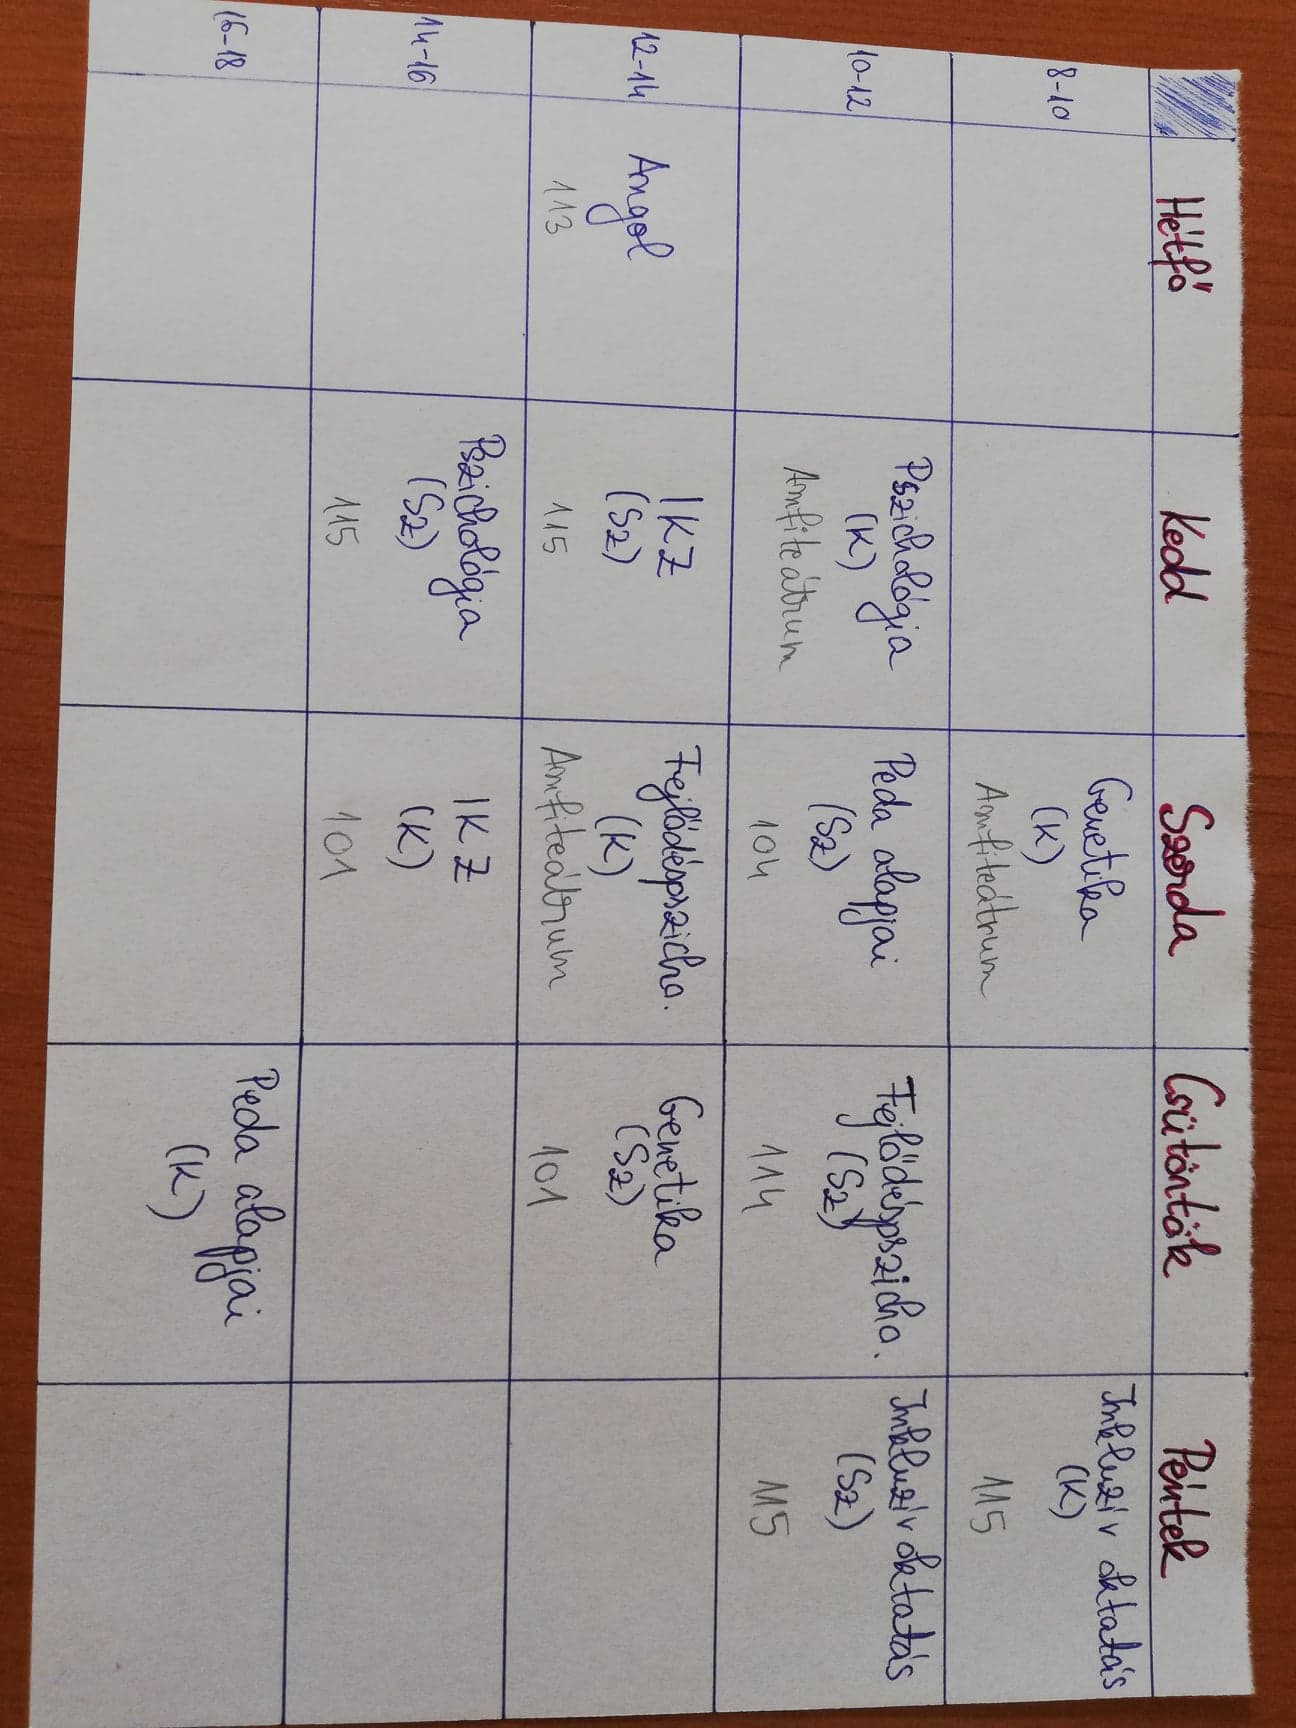 Hétfő Kedd Szerda Csütörtök Péntek
8-10
Genetika
(K)
Amfiteátrum
Inkluzív oktatás
(K)
115
10-12
Pszichológia
(K)
Amfiteátrum
Peda alapjai
(Sz)
104
Fejlődéspszicho.
(Sz)
114
Inkluzív oktatás
(Sz)
115
12-14
Angol
113
IKZ
(Sz)
115
Fejlődéspszicho.
(K)
Amfiteátrum
Genetika
(Sz)
101
14-16
Pszichológia
(Sz)
115
IKZ
(K)
101
16-18
Peda alapjai
(K)